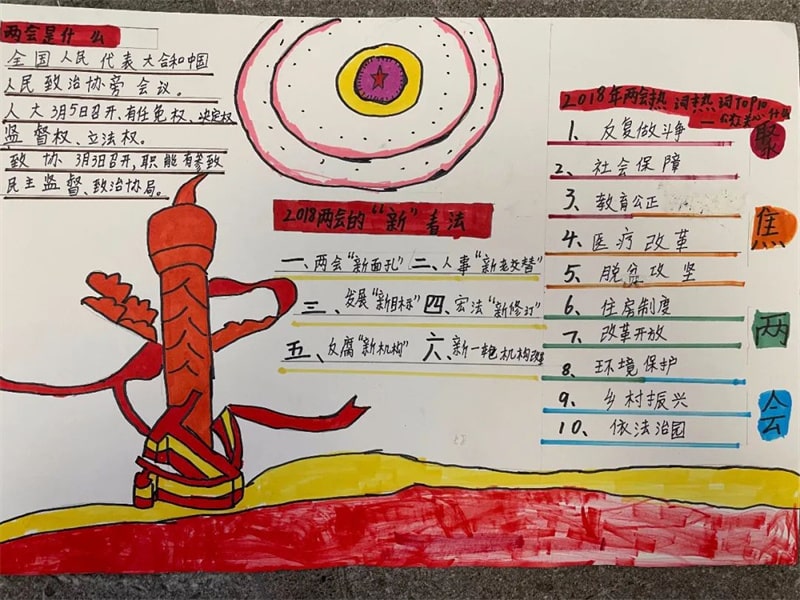 两会是什么
全国人民代表大合和中国
人民致治协旁会议。
人大3月5日召开,有任免权、决定权
监督权、立法权。
致协3月3日召开,职能有参致
民主监督、致治协局。
2018两会的“新”看法
一、两会“新面孔”二、人事“新老交替”
三、发展“新目标”四、宏法“新修订”
五、反腐“新机构”六、新一轮机构改革
2018年两会热词热词TOP10
1、反复做斗争
2、社会保障
3、教育公正
4、医疗改革
5、脱盆攻坚
6、住房制度
7、改革开放
8、环境保护
9、乡村振兴
10、依法治国
聚
焦
两
会